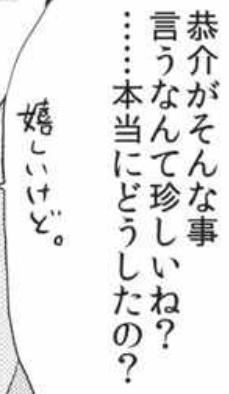 恭介がそんな事
言うなんて珍しいね？
……本当にどうしたの？
嬉しいけど。